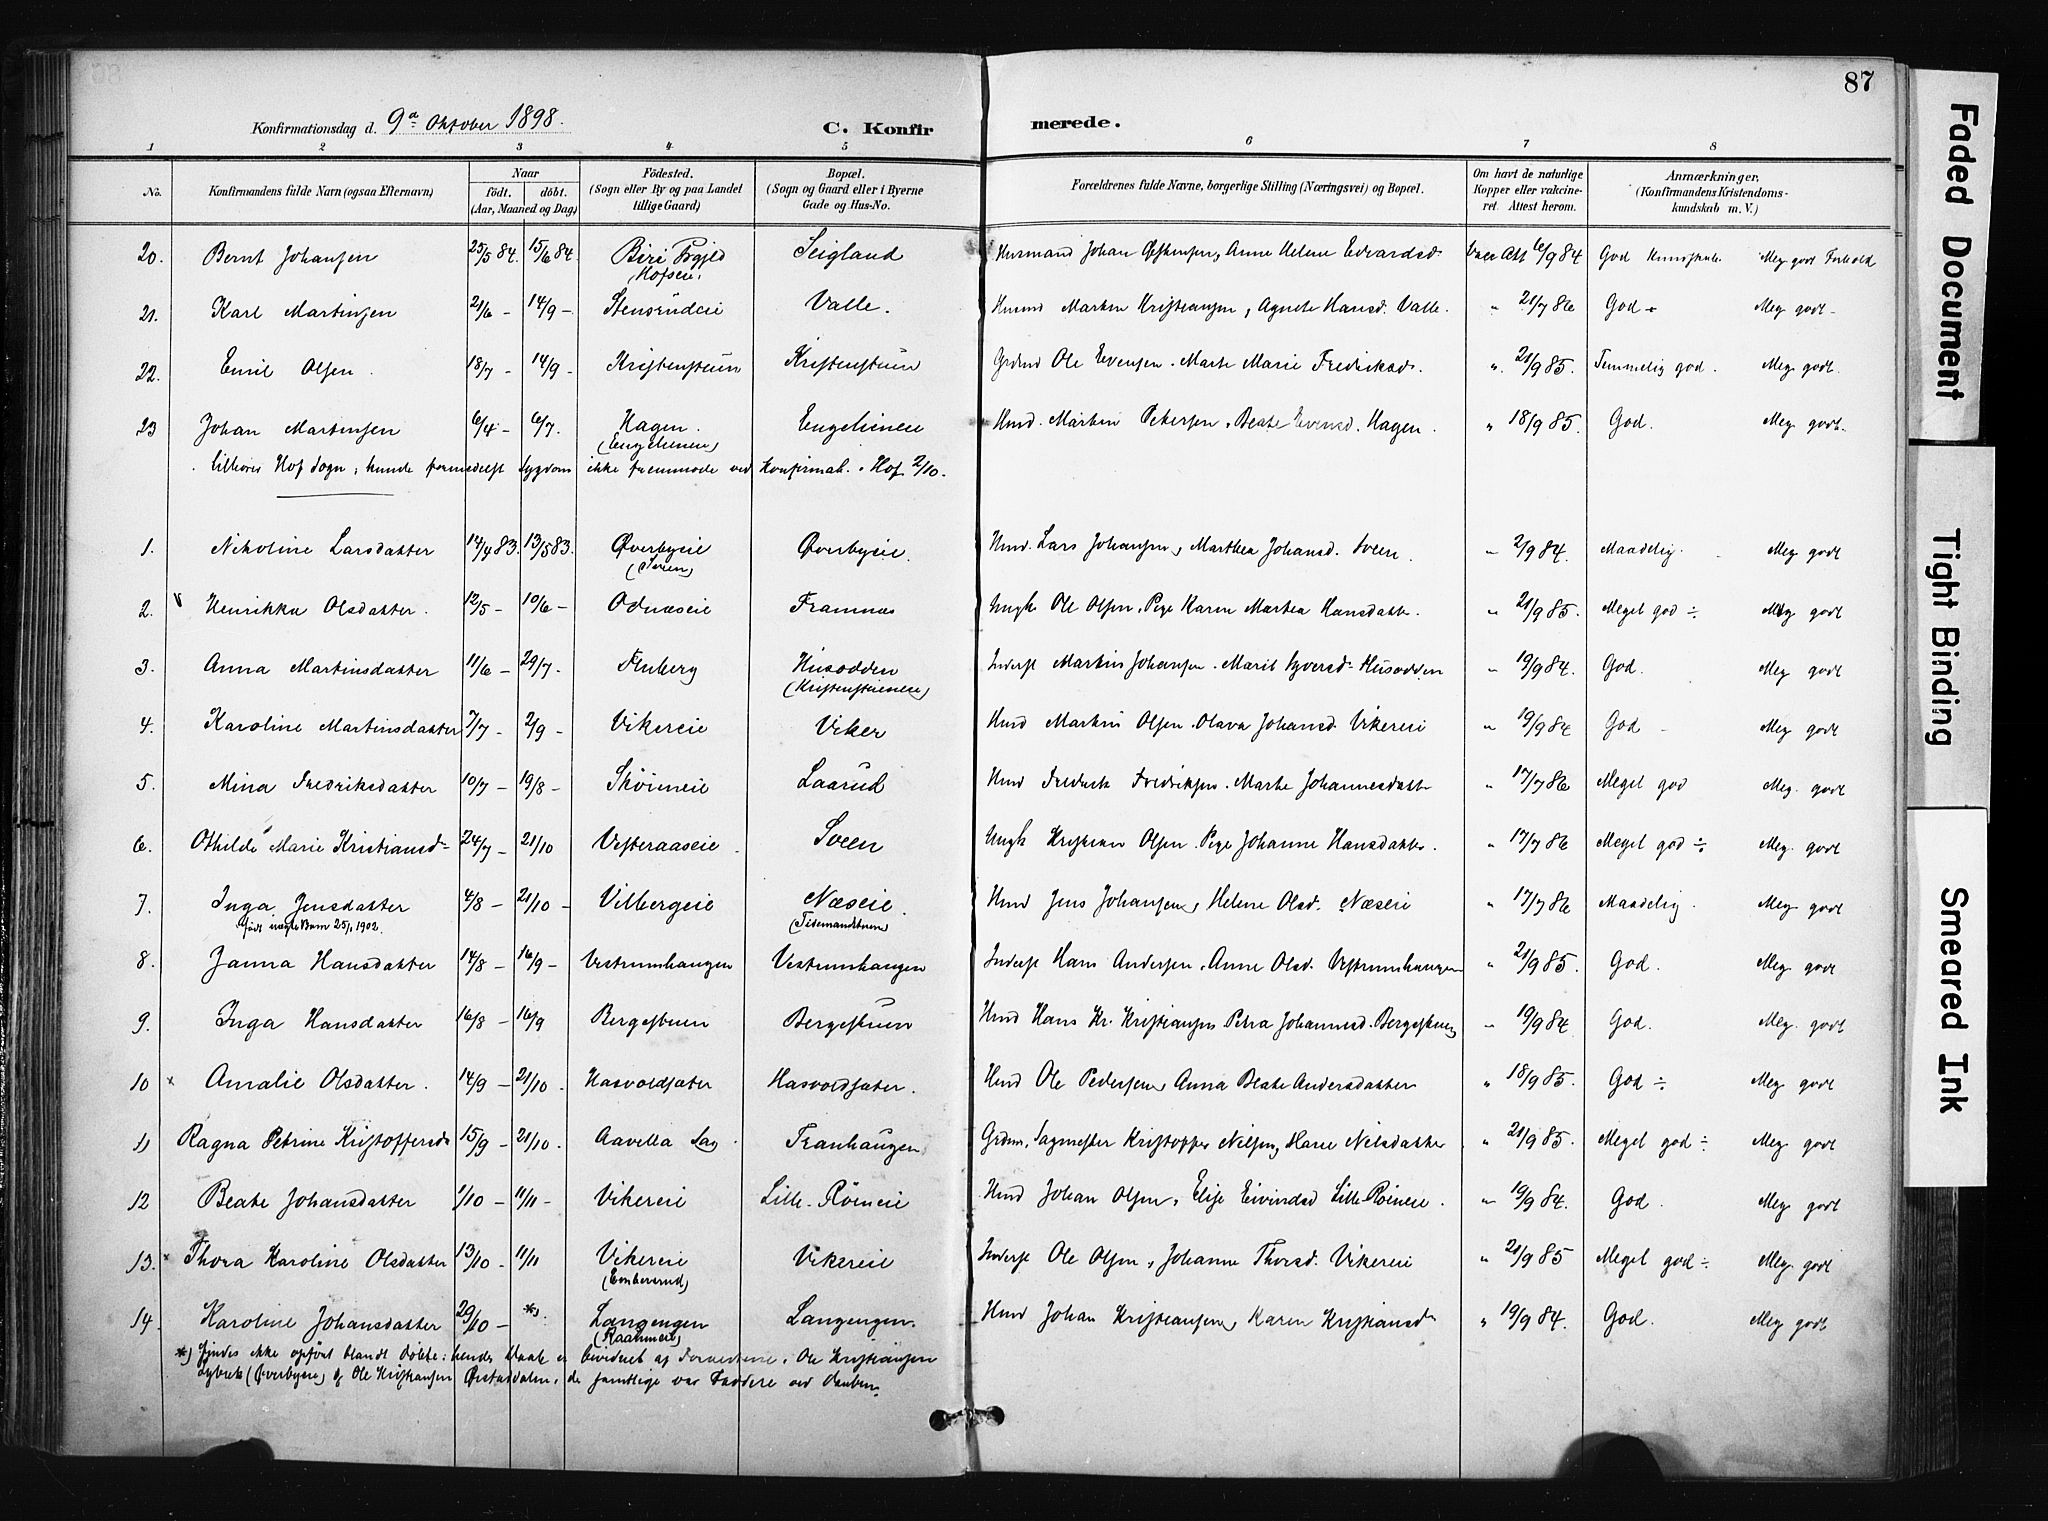 87
Konfirmationsdag d. 9a Oktober 1898.
C. Konfir merede.
1 2 3 4 5 6 7 8
No. Konfirmandens fulde Navn (ogsaa Efternavn) Naar födt. döbt. (Aar, Maaned og Dag) Födested. (Sogn eller By og paa Landet tillige Gaard) Bopæl. (Sogn og Gaard eller i Byerne Gade og Hus-No. Forældrenes fulde Navne, borgerlige Stilling (Næringsvei) og Bopæl. Om havt de naturlige Kopper eller vakcineret. Attest herom. Anmærkninger, (Konfirmandens Kristendomskundskab m. V.)
20. Bernt Johansen 25/5 84. 15/6 84. Biri Hofseie Seigland Husmand Johan Anne Helene Edvardsd. Vacc Att 6/9 84 God Kundskab. Meg. godt Forhold
21. Karl Martinsen 21/6 – 14/9 – Stensrudeie Valle. Husmd Martin Kristiansen, Agnete Hansd. Valle. " 21/7 86 God ÷ Meg godt –
22. Emil Olsen. 18/7 – 14/9 – Kristenstuen Kristenstuen Grdmd Ole Evensen. Marte Marie Fredriksd. " 21/9 85. Temmelig god. Meg godt.
23 Johan Martinsen 6/4 – 6/7. Hagen. (Engelieneie) Engelieneie Hmd. Martin Petersen, Beate Evensd. Hagen. " 18/9 85. God. Meg godt.
Tilhører Hof Sogn; kunde formedelst Sygdom ikke fremmøde ved Konfirmat. i Hof 2/10.
1. Nikoline Larsdatter 14/4 83. 13/5 83. Øverbyeie (Sveen) Øverbyeie. Hmd. Lars Johansen, Marthea Johansd. Sveen. " 2/9 84. Maadelig. Meg godt
2. Henrikka Olsdatter. 12/5 – 10/6 – Odnæseie Framnæs Ungk Ole Olsen, Pige Karen Martea Hansdatter. " 21/9 85. Meget god ÷ Meg godt
3. Anna Martinsdatter 11/6 – 29/7 – Fluberg Husodden (Kristenstueneie) Inderst Martin Johansen. Marit Syversd. Husodden " 19/9 84. God. Meg godt
4. Karoline Martinsdatter 7/7 – 2/9 – Vikereie Viker Hmd Martin Olsen. Olava Johansd. Vikereie " 19/9 84 God Meg godt
5. Mina Fredriksdatter 10/7 – 19/8 – Skøieneie Laarud Hmd Fredrik Fredriksen. Marte Johannesdatter " 17/7 86 Meget god Meg. godt
6. Othilde Marie Kristiansd. 24/7 – 21/10 Vesteraaseie Sveen Ungk Kristian Olsen. Pige Johanne Hansdatter. " 17/7 86 Meget god ÷ Meg. godt
7. Inga Jensdatter 4/8 – 21/10 – Vilbergeie Næseie. (Tidemandstuen) Hmd Jens Johansen, Helene Olsd. Næseie " 17/7 86 Maadelig. Meg. godt
født uægte Barn 25/1 1902.
8. Janna Hansdatter 14/8 – 16/9 – Vestrumhaugen Vestrumhaugen Inderst Hans Andersen, Anne Olsd. Vestrumhaugen " 21/9 85. God. Meg. godt
9. Inga Hansdatter 16/8 – 16/9 Bergestuen Bergestuen Hmd Hans Kr. Kristiansen Petra Johannesd. Bergestuen " 19/9 84 God. Meg. godt
10 x Amalie Olsdatter. 14/9 – 21/10. Hasvoldsæter Hasvoldsæter. Hmd Ole Pedersen, Anna Beate Andersdatter " 18/9 85. God ÷ Meg godt
11 Ragna Petrine Kristoffersd. 15/9 – 21/10. Aavella Sag. Franhaugen Grdm., Sagmester Kristoffer Nilsen, Marie Nilsdatter " 21/9 85. Meget god ÷ Meg godt
12 Beate Johansdatter 1/10 – 11/11 – Vikereie Lille-Røineie Hmd Johan Olsen, Elise Eivindsd Lille Røineie. " 19/9 84. God. Meg godt
13. x Thora Karoline Olsdatter 13/10 – 11/11 Vikereie Vikereie Inderst Ole Olsen, Johanne Thorsd. Vikereie " 21/9 85 Meget god ÷ Meg godt
14. Karoline Johansdatter 29/10 – *) Langengen Langengen. Hmd Johan Kristiansen, Karen Kristiansd " 19/9 84. God. Meg godt
*) findes ikke opført blandt døbte; hendes Daab er bevidnet af Forældrene, Ole Kristiansen
(Øverbyeie) og Ole Kristiansen, de samtlige var Faddere ved Daaben.
Faded Document
Tight Binding
Smeared Ink